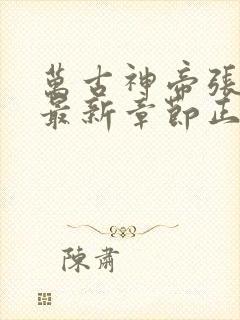 萬古神帝張
最新章節正
陳肅